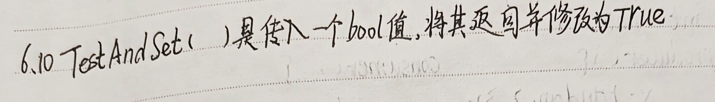 6.10 TestAndSet( )是传入一个bool值,将其返回并修改为True